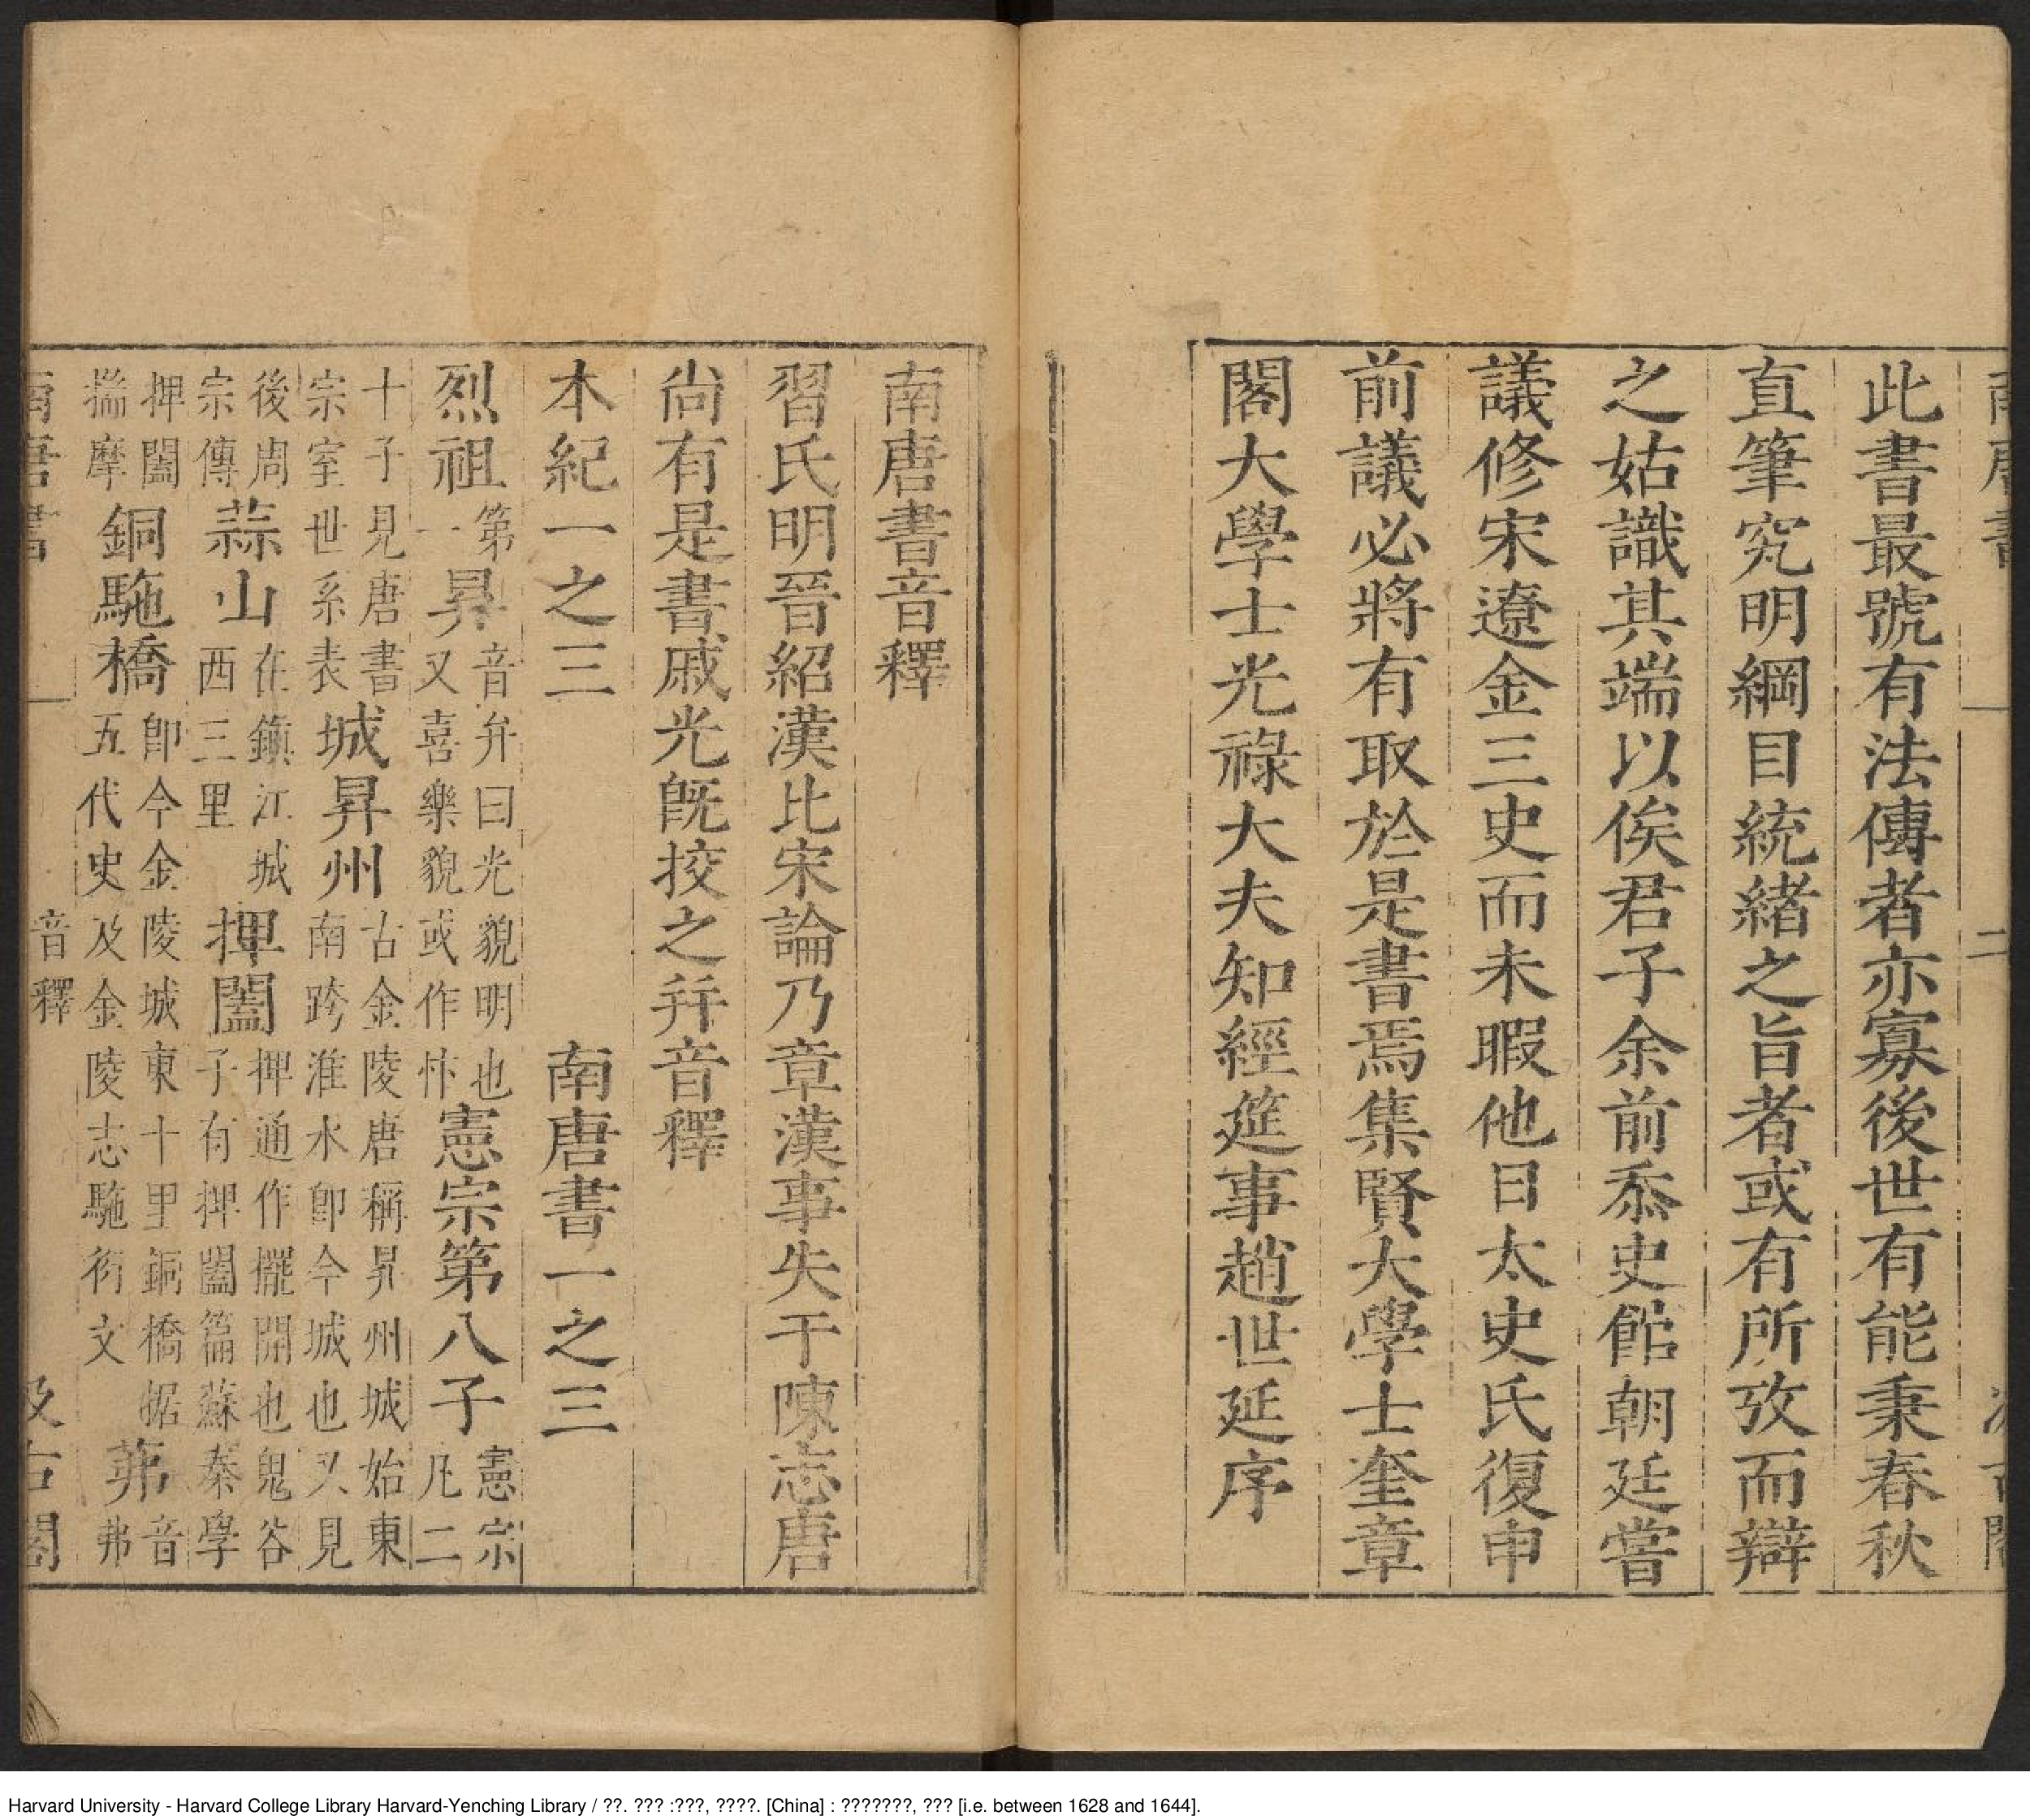 此書最號有法傳者亦寡後世有能秉春秋
直筆究明綱目統緒之旨者或有所攷而辯
之姑識其端以俟君子余前忝史館朝廷嘗
議修宋遼金三史而未暇他日太史氏復申
前議必將有取於是書焉集賢大學士奎章
閣大學士光祿大夫知經筵事趙世延序
南唐書音釋
習氏明晉紹漢比宋論乃章漢事失于陳志唐
尚有是書戚光旣挍之幷音釋
本紀一之三 南唐書一之三
烈祖第一昪音弁曰光貌明也又喜樂貌或作忭憲宗第八子憲宗凡二
十子見唐書宗室世系表城昇州古金陵唐稱昇州城始東南跨淮水卽今城也又見
後周宗傳蒜山在鎮江城西三里捭闔捭通作擺開也鬼谷子有捭闔篇蘇秦學
捭闔揣摩銅駞橋卽今金陵城東十里銅橋據五代史及金陵志駞衍文茀音弗
南唐書 一 音釋 汲古閣